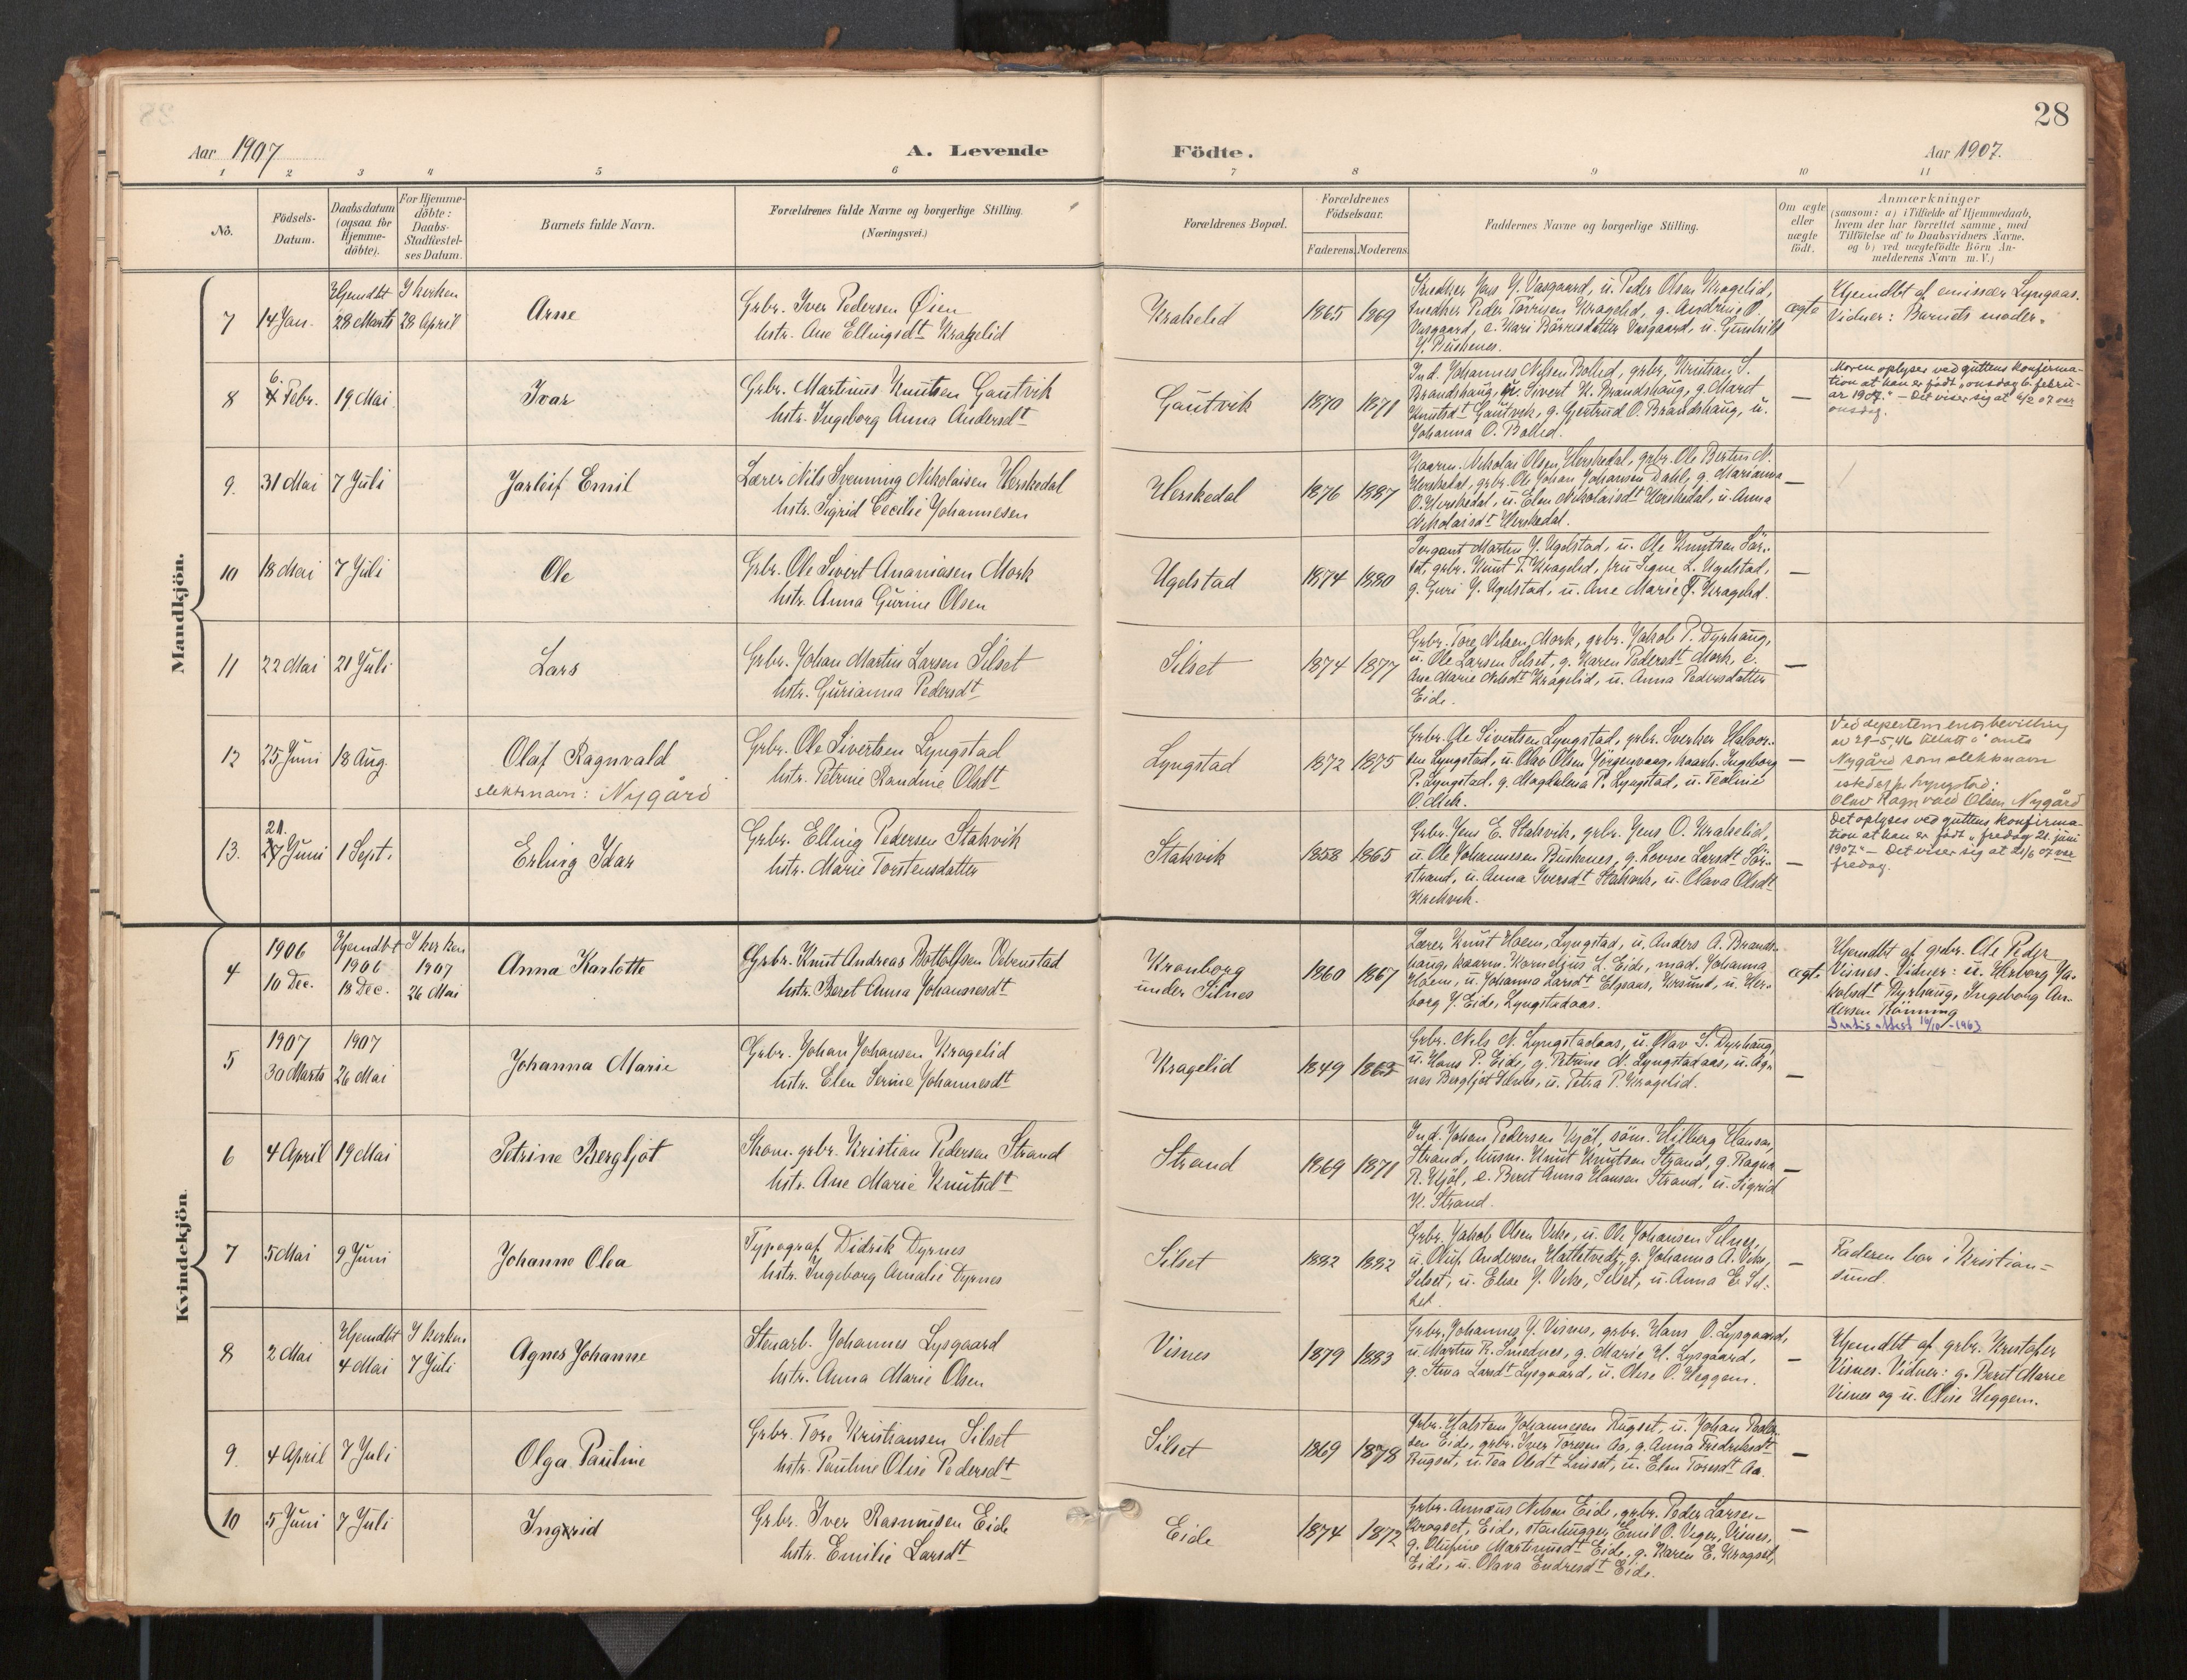 28
Aar 1907
A. Levende
Födte.
Aar 1907.
1 2 3 4 5 6 7 8 9 10 11
No.
Födsels-
Datum.
Daabsdatum
(ogsaa for
Hjemme-
döbte).
For Hjemme-
döbte:
Daabs-
Stadfæstel-
ses Datum.
Barnets fulde Navn.
Forældrenes fulde Navne og borgerlige Stilling.
(Næringsvei.)
Forældrenes Bopæl.
Forældrenes
Födselsaar.
Faderens. Moderens.
Faddernes Navne og borgerlige Stilling.
Om ægte
eller
uægte
födt.
Anmærkninger
(saasom: a) i Tilfælde af Hjemmedaab,
hvem der har forrettet samme, med
Tilföielse af to Daabsvidners Navne,
og b) ved uægtefödte Börn An-
melderens Navn m. V.)
Mandkjön.
7
14 Jan.
Hjemdbt
28 Marts
I kirken
28 April
Arne
Grbr. Iver Pedersen Øien
hstr. Ane Ellingsdt Kragelid
Krakelid
1865 1869
Snedker Jens J. Vasgaard, u. Peder Olsen Kragelid,
snedker Peder Torrisen Kragelid, g. Andrine O.
Vasgaard, e. Kari Börresdatter Vasgaard, u. Gunhild
J. Buskenes.
ægte
Hjemdbt af emissær Lyngaas.
Vidner: Barnets moder.
8
6.
4 Febr.
19 Mai
Ivar
Grbr. Martinus Knutsen Gautvik
hstr. Ingeborg Anna Andersdt
Gautvik
1870 1871
Ind. Johannes Nilsen Bolled, grbr. Knut S.
Brandshaug, u. Sivert K. Brandshaug, g. Maret
Knutsdt Gautvik, g. Gjertrud O. Brandshaug, u.
Johanna O. Bolled.
—
Moren oplyser ved guttens konfirma-
tion at han er født "onsdag 6. febru-
ar 1907." — Det viser sig at 6/2 07 var
onsdag.
9.
31 Mai
7 Juli
Jarleif Emil
Lærer Nils Svenning Nikolaisen Herskedal
hstr. Sigrid Cecilie Johannesen
Herskedal
1876 1887
Kaarm. Nikolai Olsen Herskedal, grbr. Ole Bertin N.
Herskedal, grbr. Ole Johan Johansen Dahl, g. Marianna
O. Herskedal, u. Elen Nikolaisdt Herskedal, u. Anna
Nikolaisdt Herskedal.
—
10
18 Mai
7 Juli
Ole
Grbr. Ole Sivert Ananiasen Mork
hstr. Anna Gurine Olsen
Ugelstad
1874 1880
Sergant Martin J. Ugelstad, u. Ole Knutsen Sør-
set, grbr. Knut T. Kragelid, fru Signe L. Ugelstad,
g. Guri J. Ugelstad, u. Ane Marie T. Kragelid.
—
11
22 Mai
21 Juli
Lars
Grbr. Johan Martin Larsen Silset
hstr. Gurianna Pedersdt
Silset
1874 1877
Grbr. Tore Nilsen Mork, grbr. Jakob P. Dyrhaug,
u. Ole Larsen Silset, g. Karen Pedersdt Mork, e.
Ane Marie Nilsdt Kragelid, u. Anna Pedersdatter
Eide.
—
12
25 Juni
18 Aug.
Olaf Ragnvald
slektsnavn: Nygård
Grbr. Ole Sivertsen Lyngstad
hstr. Petrine Randine Olsdt
Lyngstad
1872 1875
Grbr. Ole Sivertsen Lyngstad, grbr. Sverker Halvor-
sen Lyngstad, u. Olav Olsen Jörgenvaag, kaarh. Ingeborg
P. Lyngstad, g. Magdalena P. Lyngstad, u. Tealine
O. Mek.
—
Ved departementsbevilling
av 29-5,46 tillatt å anta
Nygård som slektsnavn
istedenfor Lyngstad:
Olav Ragnvald Olsen Nygård
13.
21.
27 Juni
1 Sept.
Erling Idar
Grbr. Elling Pedersen Stakvik
hstr. Marie Torstensdatter
Stakvik
1858 1865
Grbr. Jens E. Stakvik, grbr. Jens O. Krakelid,
u. Ole Johannesen Buskenes, g. Lovise Larsdt Sör-
strand, u. Anna Iversdt Stakvik, u. Olava Olsdt
Krekvik.
—
Det oplyses ved guttens konfirma-
tion at han er født "fredag 21. juni
1907." — Det viser sig at 21/6 07 var
fredag.
Kvindekjön.
4
1906
10 Dec.
Hjemdbt
1906
18 Dec.
I kirken
1907
26 Mai
Anna Karlotte
Grbr. Knut Andreas Bottolfsen Vebenstad
hstr. Beret Anna Johannesdt
Kronborg
under Silnes
1860 1867
Lærer Knut Hoem, Lyngstad, u. Anders A. Brands-
haug, kaarm. Kornelius L. Eide, mad. Johanna
Hoem, u. Johanna Larsdt Elgsaas, Krsund, u. Her-
borg J. Eide, Lyngstadaas.
ægte
Hjemdbt af grbr. Ole Peder
Visnes. Vidner: u. Herborg Ja-
kobsdt Dyrhaug, Ingeborg An-
dersen Rönning
Gratis attest 16/10 - 1963
5
1907
30 Marts
1907
26 Mai
Johanna Marie
Grbr. Johan Johansen Kragelid
hstr. Elen Serine Johannesdt
Kragelid
1849 1863
Grbr. Nils N. Lyngstadaas, u. Olav S. Dyrhaug,
u. Hans P. Eide, g. Petrine N. Lyngstadaas, u. Ag-
nes Bergljot Silnes, u. Petra P. Kragelid.
—
6
4 April
19 Mai
Petrine Bergljot
Skom. grbr. Kristian Pedersen Strand
hstr. Ane Marie Knutsdt
Strand
1869 1871
Ind. Johan Pedersen Kjöl, söm. Hilberg Hansen,
Strand, husm. Knut Knutsen Strand, g. Ragna
R. Kjöl, e. Beret Anna Hansen Strand, u. Sigrid
K. Strand.
—
7
5 Mai
9 Juni
Johanne Olea
Typograf Didrik Dyrnes
hstr. Ingeborg Amalie Dyrnes
Silset
1882 1882
Grbr. Jakob Olsen Vike, u. Ole Johansen Silnes,
u. Oluf Andersen Hatletvedt, g. Johanna A. Vike,
Silset, u. Elise J. Vike, Silset, u. Anna E. Sil-
set.
—
Faderen bor i Kristian-
sund.
8
2 Mai
Hjemdbt
4 Mai
I kirken
7 Juli
Agnes Johanne
Stenarb. Johannes Lysgaard
hstr. Anna Marie Olsen
Visnes
1879 1883
Grbr. Johannes J. Visnes, grbr. Hans O. Lysgaard,
u. Martin R. Smednes, g. Marie H. Lysgaard,
g. Stina Larsdt Lysgaard, u. Olise O. Heggem.
—
Hjemdbt af grbr. Kristofer
Visnes. Vidner: g. Beret Marie
Visnes og u. Olise Heggem.
9
4 April
7 Juli
Olga Pauline
Grbr. Tore Kristiansen Silset
hstr. Pauline Olise Pedersdt
Silset
1869 1878
Grbr. Halsten Johannesen Rugset, u. Johan Peder-
sen Eide, grbr. Iver Toresen Aa, g. Anna Fredriksdt
Rugset, u. Tea Olsdt Linset, u. Elen Toresdt Aa.
—
10
5 Juni
7 Juli
Ingrid
Grbr. Iver Rasmusen Eide
hstr. Emilie Larsdt
Eide
1874 1872
Grbr. Annæus Nilsen Eide, grbr. Peder Larsen
Krogset, Eide, stenhugger Emil O. Veger, Visnes,
g. Olufine Martinusdt Eide, g. Karen E. Krogset,
Eide, u. Olava Endresdt Eide.
—